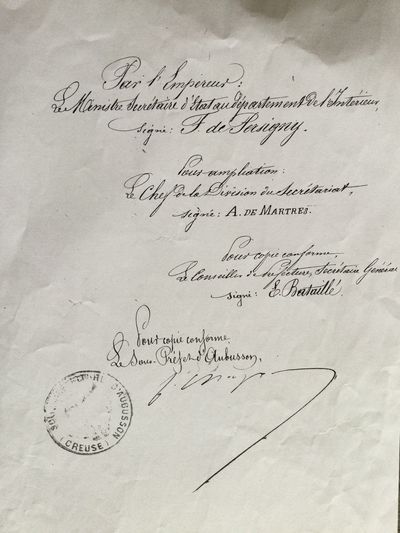 Par l'Empereur:
Le Ministre Secrétaire d'Etat au département de l'Intérieur,
signé: F. de Persigny.
Pour ampliation:
Le Chef de la Division du Secrétariat,
signé: A. DE MARTRES.
Pour copie conforme,
Le Conseiller de préfecture, Secrétaire Général
signé: E. Bataillé.
Pour copie conforme
Le Sous-Préfet d'Aubusson,
D'AUBUSSON
(CREUSE)